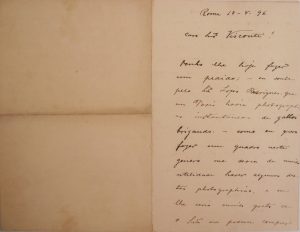 Roma 10-5-96
caro Snr Visconti!
Venho lhe hoje fazer
um pedido: - eu soube
pelo Snr Lopes Rodrigues que
em Paris havia photographias
instantaneas de gallos
brigando. - como eu quero
fazer um quadro neste
genero me seria de muita
utilidade haver algumas des-
tas photographias, e se
lhe
o Snr as podesse comprar